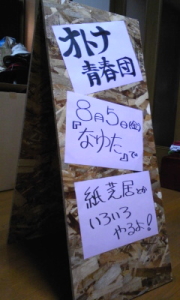 オトナ
青春団
8月5日(金)
『なゆた』で
紙芝居とか
いろいろ
やるよ!